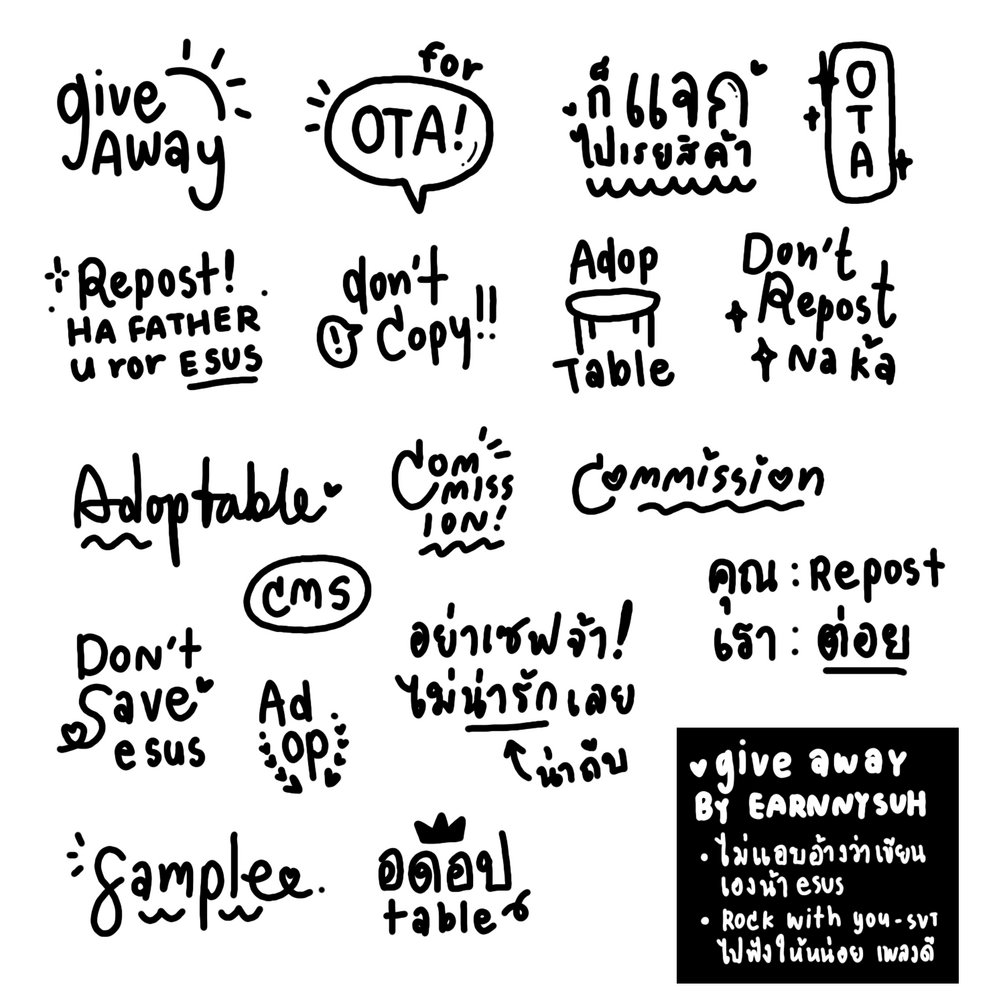 give
Away
for
OTA!
ก็แจก
ไปเรยสิค้า
O
T
A
Repost!
HA FATHER
u ror ESUS
don't
Copy!!
Adop
Table
Don't
Repost
Na Ka
Adoptable
Com
miss
ion!
Commission
cms
คุณ : Repost
เรา : ต่อย
Don't
Save
esus
Ad
op
อย่าเซฟจ้า!
ไม่น่ารักเลย
น่าถีบ
Sample
อดอป
table
give away
BY EARNNYSUH
• ไม่แอบอ้างว่าเขียน
เองน้า esus
• Rock with you-SVT
ไปฟังให้หน่อย เพลงดี